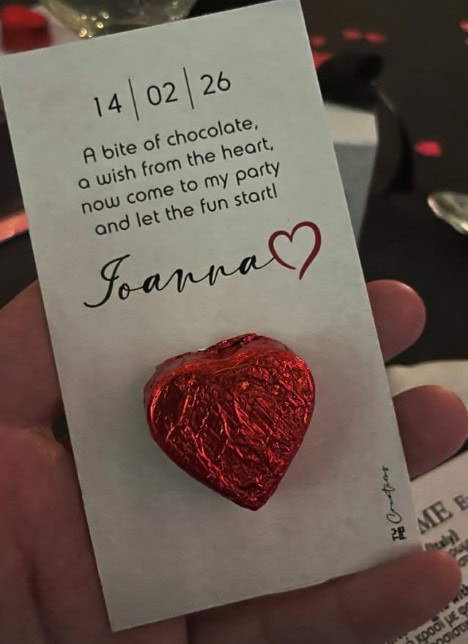 14 | 02 | 26
A bite of chocolate,
a wish from the heart,
now come to my party
and let the fun start!
Ioanna
Creations
ME
(Italy)